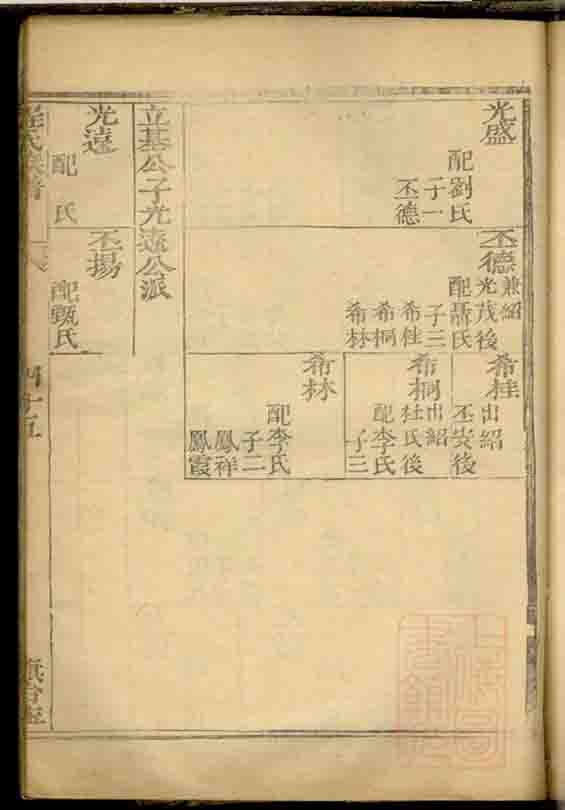 光盛
配劉氏
子一
丕德
丕德兼紹
光茂後
配聶氏
子三
希桂
希桐
希林
希桂出紹
丕安後
希桐出紹
杜氏後
配李氏
子三
希林
配李氏
子二
鳳祥
鳳霞
立基公子光遠公派
光遠
配 氏
丕揚
配甄氏
四十五